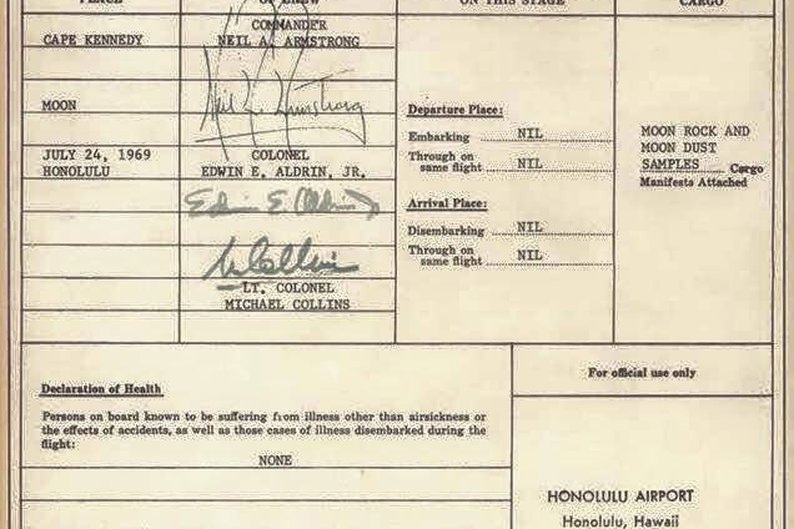 PLACE
OF CREW
ON THIS STAGE
CARGO
CAPE KENNEDY
COMMANDER
NEIL A. ARMSTRONG
MOON
Neil A. Armstrong
JULY 24, 1969
HONOLULU
COLONEL
EDWIN E. ALDRIN, JR.
Edwin E Aldrin Jr
M Collins
LT. COLONEL
MICHAEL COLLINS
Departure Place:
Embarking NIL
Through on
same flight NIL
Arrival Place:
Disembarking NIL
Through on
same flight NIL
MOON ROCK AND
MOON DUST
SAMPLES Cargo
Manifests Attached
Declaration of Health
Persons on board known to be suffering from illness other than airsickness or
the effects of accidents, as well as those cases of illness disembarked during the
flight:
NONE
For official use only
HONOLULU AIRPORT
Honolulu, Hawaii